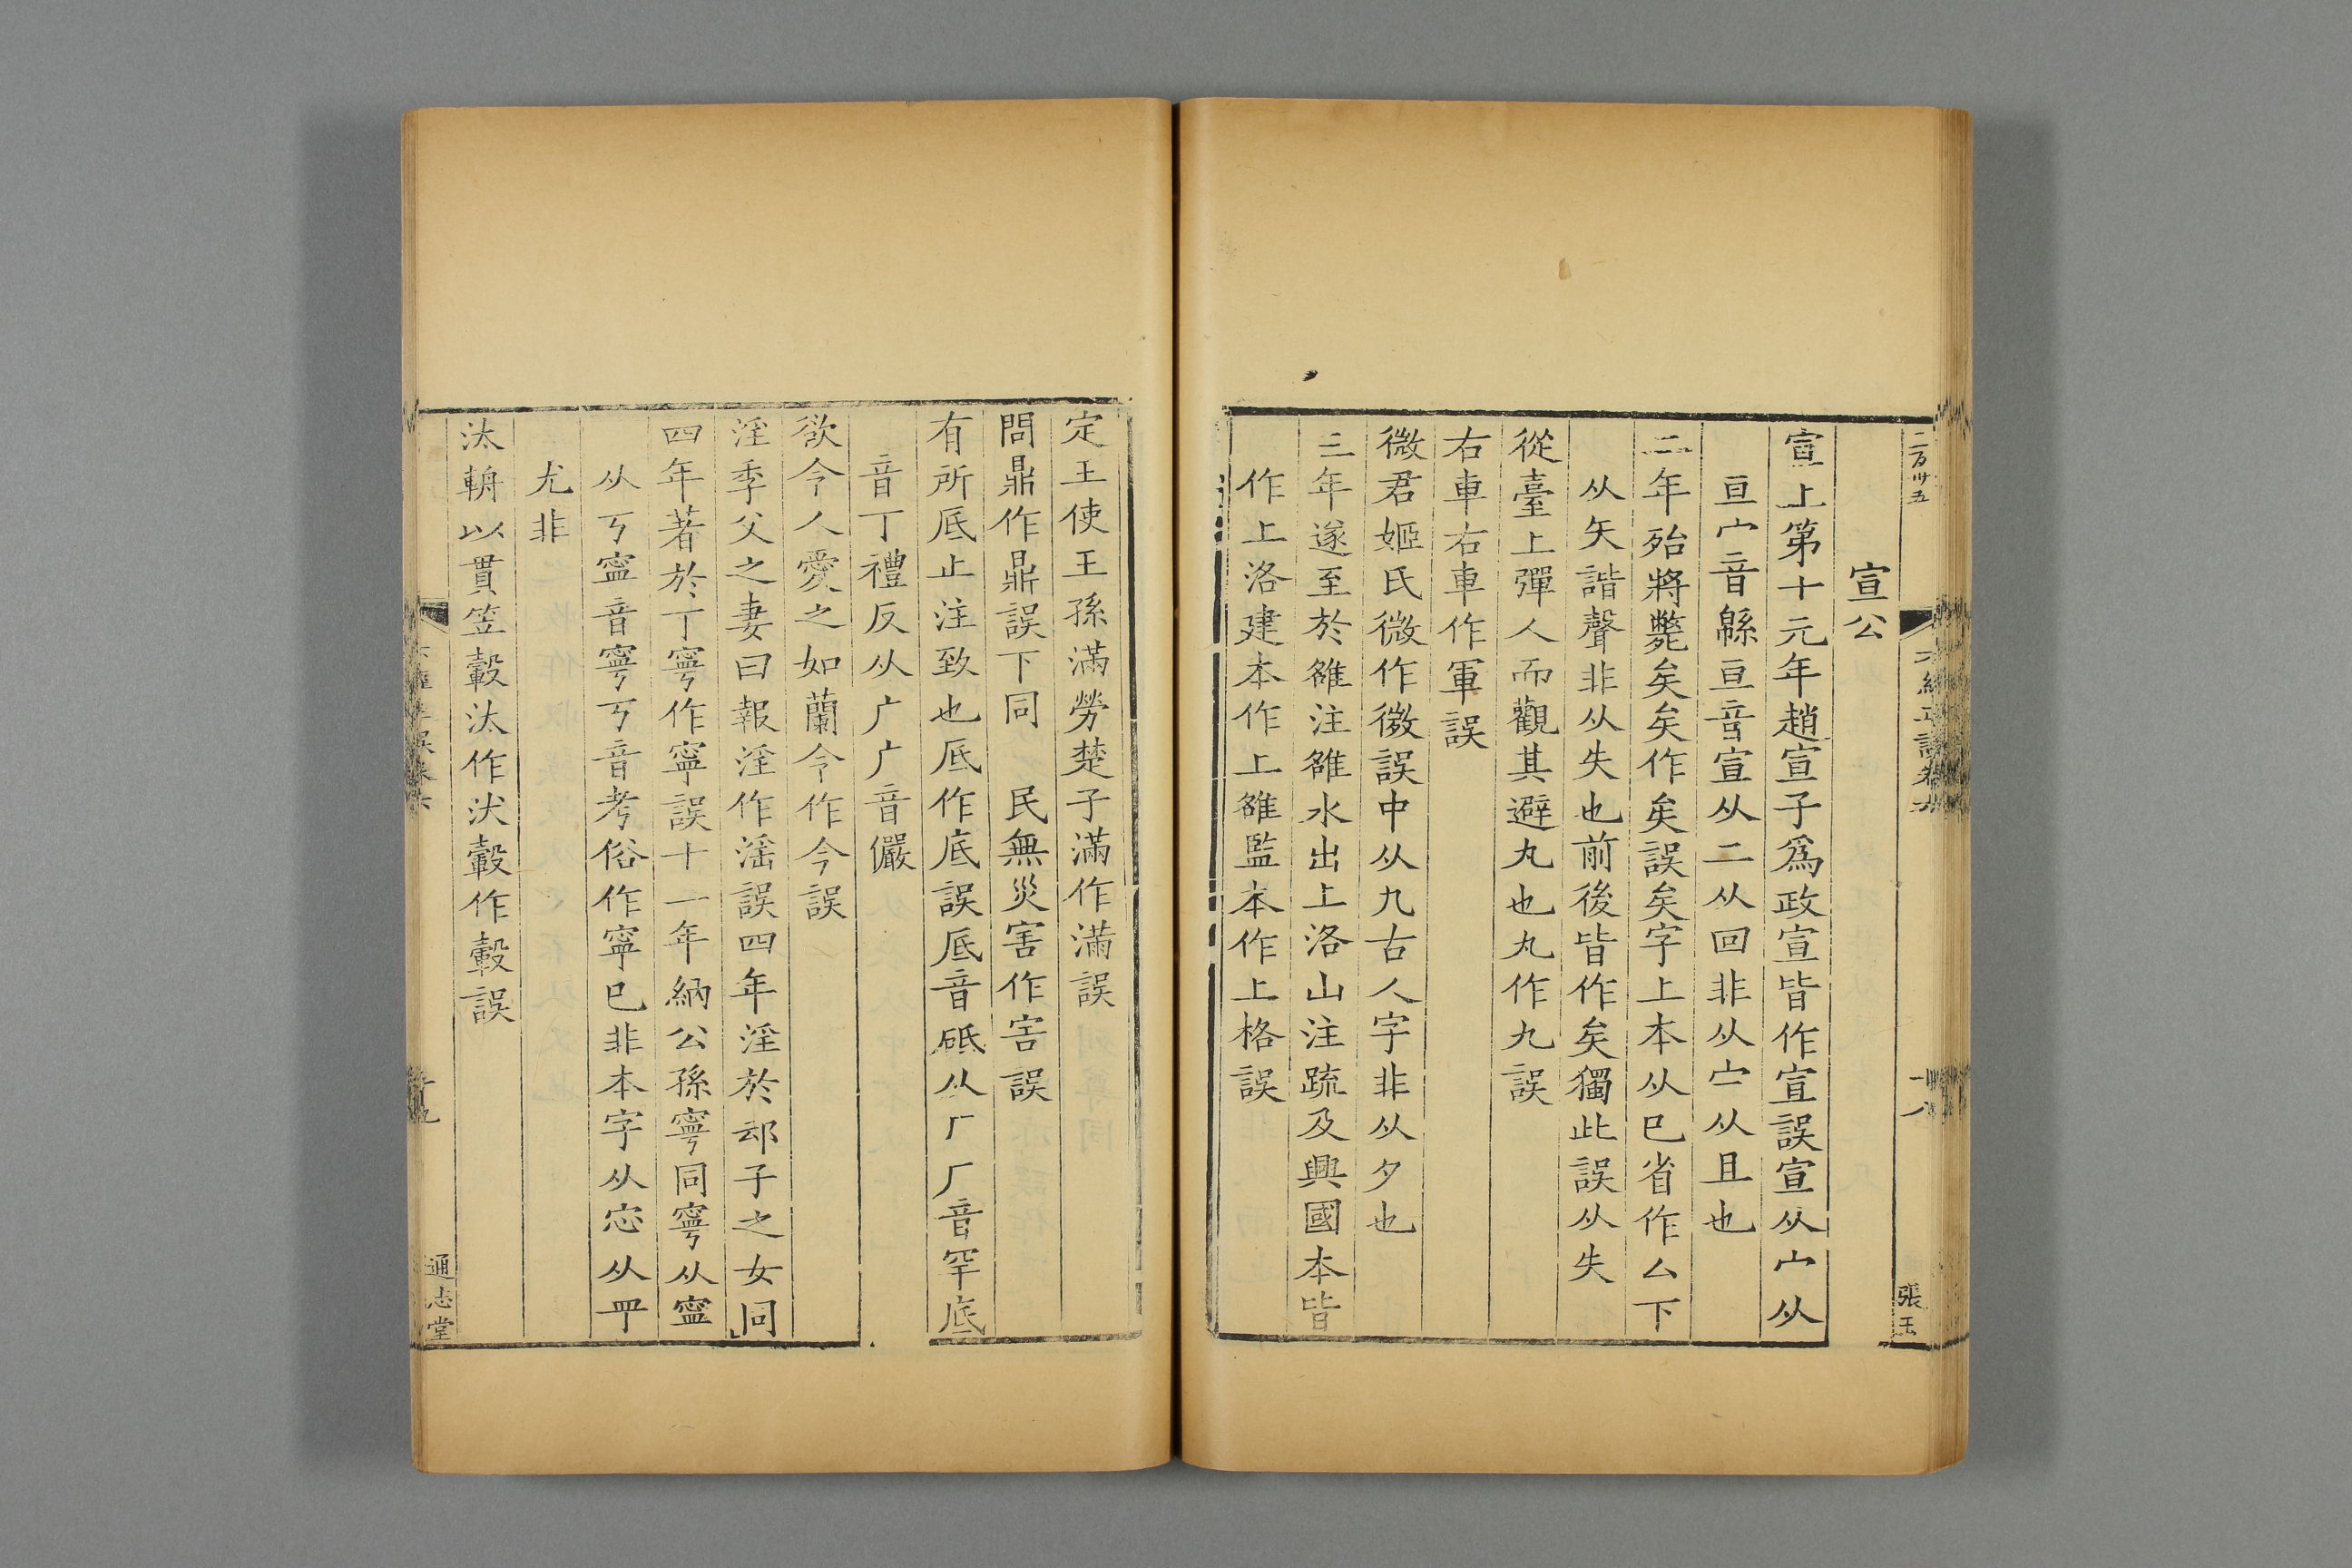 二百卅五
六經正誤卷六
十八
張玉
宣公
宣上第十元年趙宣子爲政宣皆作宣誤宣从宀从
亘宀音緜亘音宣从二从回非从宀从且也
二年殆將斃矣矣作矣誤矣字上本从巳省作厶下
从矢諧聲非从失也前後皆作矣獨此誤从失
從臺上彈人而觀其避丸也丸作九誤
右車右車作軍誤
微君姬氏微作微誤中从九古人字非从夕也
三年遂至於雒注雒水出上洛山注疏及興國本皆
作上洛建本作上雒監本作上格誤
定王使王孫滿勞楚子滿作滿誤
問鼎作鼎誤下同 民無災害作害誤
有所底止注致也底作底誤底音砥从厂厂音罕底
音丁禮反从广广音儼
欲令人愛之如蘭令作今誤
淫季父之妻曰報淫作滛誤四年淫於䢵子之女同
四年著於丁寧作寧誤十一年納公孫寧同寧从寍
从丂寍音寧丂音考俗作寕已非本字从寍从罒
尤非
汰輈以貫笠轂汰作汏轂作轂誤
六經正誤卷六
十九
通志堂